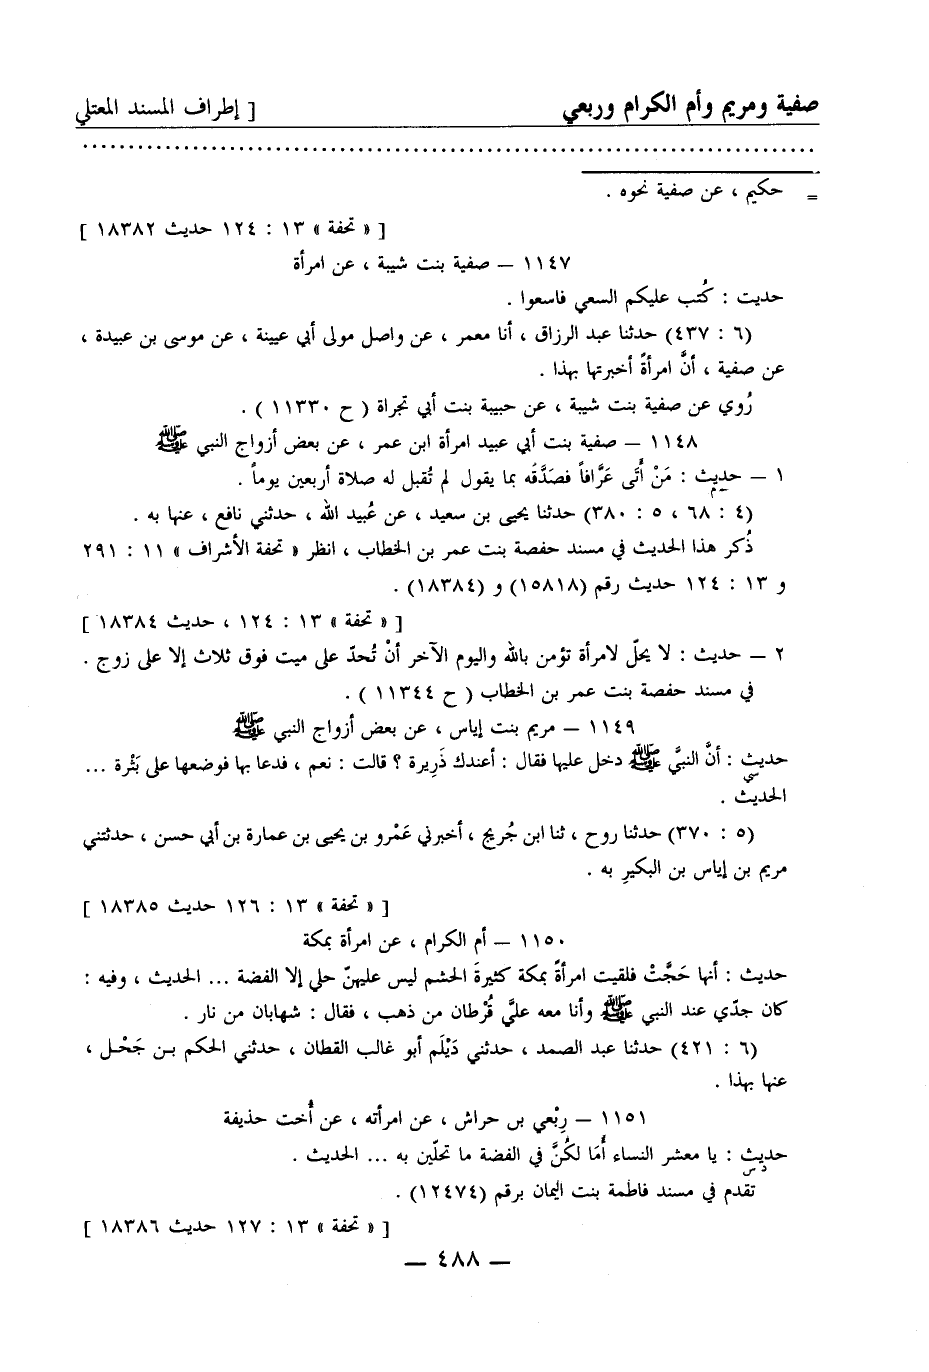 صفية ومريم وأم الكرام وربعي [ إطراف المسند المعتلي
= حكيم ، عن صفية نحوه .
[ « تحفة » ١٣ : ١٢٤ حديث ١٨٣٨٢ ]
١١٤٧ — صفية بنت شيبة ، عن امرأة
حديث : كُتب عليكم السعي فاسعوا .
(٦ : ٤٣٧) حدثنا عبد الرزاق ، أنا معمر ، عن واصل مولى أبي عيينة ، عن موسى بن عبيدة ،
عن صفية ، أنَّ امرأةً أخبرتها بهذا .
رُوي عن صفية بنت شيبة ، عن حبيبة بنت أبي تجراة ( ح ١١٣٣٠ ) .
١١٤٨ — صفية بنت أبي عبيد امرأة ابن عمر ، عن بعض أزواج النبي ﷺ
١ — حديث : مَنْ أَتَى عَرَّافاً فصَدَّقَه بما يقول لم تُقبل له صلاة أربعين يوماً .
(٤ : ٦٨ ، ٥ : ٣٨٠) حدثنا يحيى بن سعيد ، عن عُبيد الله ، حدثني نافع ، عنها به .
ذُكر هذا الحديث في مسند حفصة بنت عمر بن الخطاب ، انظر « تحفة الأشراف » ١١ : ٢٩١
و ١٣ : ١٢٤ حديث رقم (١٥٨١٨) و (١٨٣٨٤) .
[ « تحفة » ١٣ : ١٢٤ ، حديث ١٨٣٨٤ ]
٢ — حديث : لا يحلّ لامرأة تؤمن بالله واليوم الآخر أنْ تُحدّ على ميت فوق ثلاث إلا على زوج .
في مسند حفصة بنت عمر بن الخطاب ( ح ١١٣٤٤ ) .
١١٤٩ — مريم بنت إياس ، عن بعض أزواج النبي ﷺ
حديث : أنَّ النبيَّ ﷺ دخل عليها فقال : أعندك ذَرِيرة ؟ قالت : نعم ، فدعا بها فوضعها على بَثْرة ...
سي
الحديث .
(٥ : ٣٧٠) حدثنا روح ، ثنا ابن جُريج ، أخبرني عَمْرو بن يحيى بن عمارة بن أبي حسن ، حدثتني
مريم بن إياس بن البكيرِ به .
[ « تحفة » ١٣ : ١٢٦ حديث ١٨٣٨٥ ]
١١٥٠ — أم الكرام ، عن امرأة بمكة
حديث : أنها حَجَّتْ فلقيت امرأةً بمكة كثيرةَ الحشم ليس عليهنّ حلي إلا الفضة ... الحديث ، وفيه :
كان جدّي عند النبي ﷺ وأنا معه عليَّ قُرْطان من ذهب ، فقال : شهابان من نار .
(٦ : ٤٢١) حدثنا عبد الصمد ، حدثني دَيْلَم أبو غالب القطان ، حدثني الحكم بـن جَحْـل ،
عنها بهذا .
١١٥١ — رِبْعي بن حراش ، عن امرأته ، عن أُخت حذيفة
حديث : يا معشر النساء أَمَا لكُنَّ في الفضة ما تحلّين به ... الحديث .
دس
تقدم في مسند فاطمة بنت اليمان برقم (١٢٤٧٤) .
[ « تحفة » ١٣ : ١٢٧ حديث ١٨٣٨٦ ]
— ٤٨٨ —